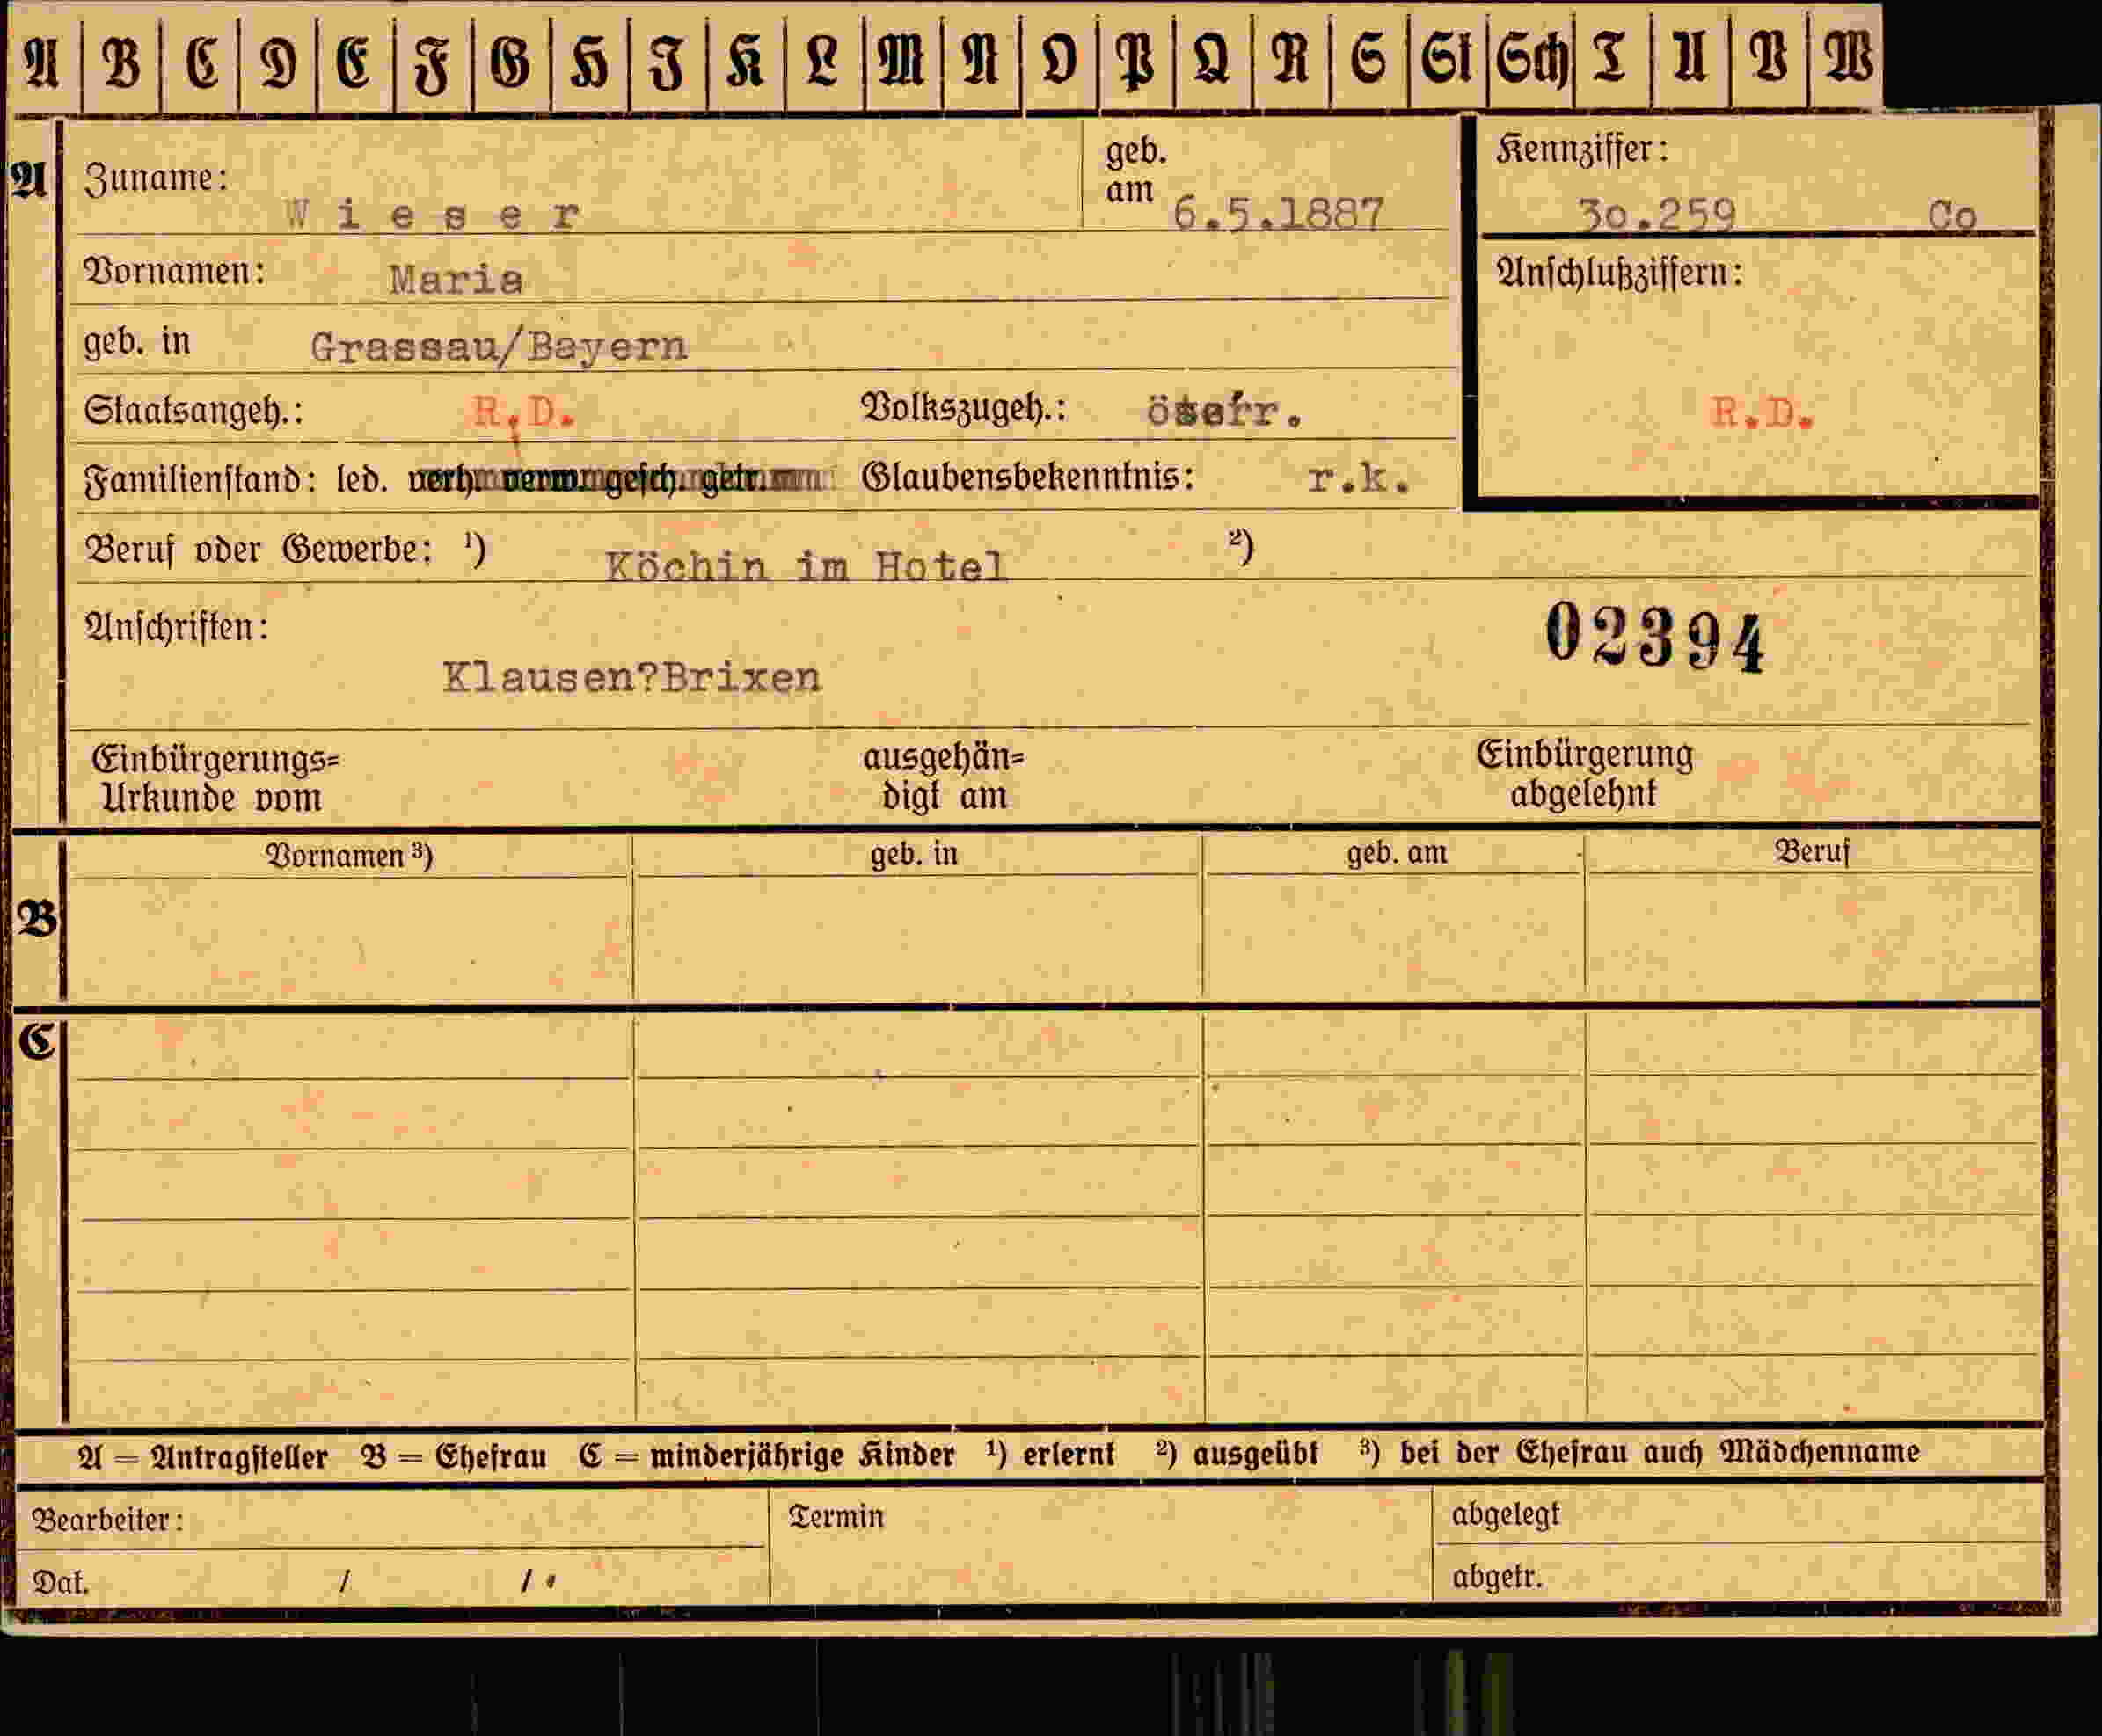 A B C D E F G H I K L M N O P Q R S St Sch T U V W
A Zuname: Wieser geb. am 6.5.1887 Kennziffer: 30.259 Co
Vornamen: Maria Anschlußziffern:
geb. in Grassau/Bayern
Staatsangeh.: R.D. Volkszugeh.: R.D.
Familienstand: led. verh. verw. gesch. getr. Glaubensbekenntnis: r.k.
Beruf oder Gewerbe: ¹) Köchin im Hotel ²)
Anschriften: 02394
Klausen?Brixen
Einbürgerungs= ausgehän= Einbürgerung
Urkunde vom digt am abgelehnt
Vornamen ³) geb. in geb. am Beruf
B
C
A = Antragsteller B = Ehefrau C = minderjährige Kinder ¹) erlernt ²) ausgeübt ³) bei der Ehefrau auch Mädchenname
Bearbeiter: Termin abgelegt
Dat. / / abgetr.